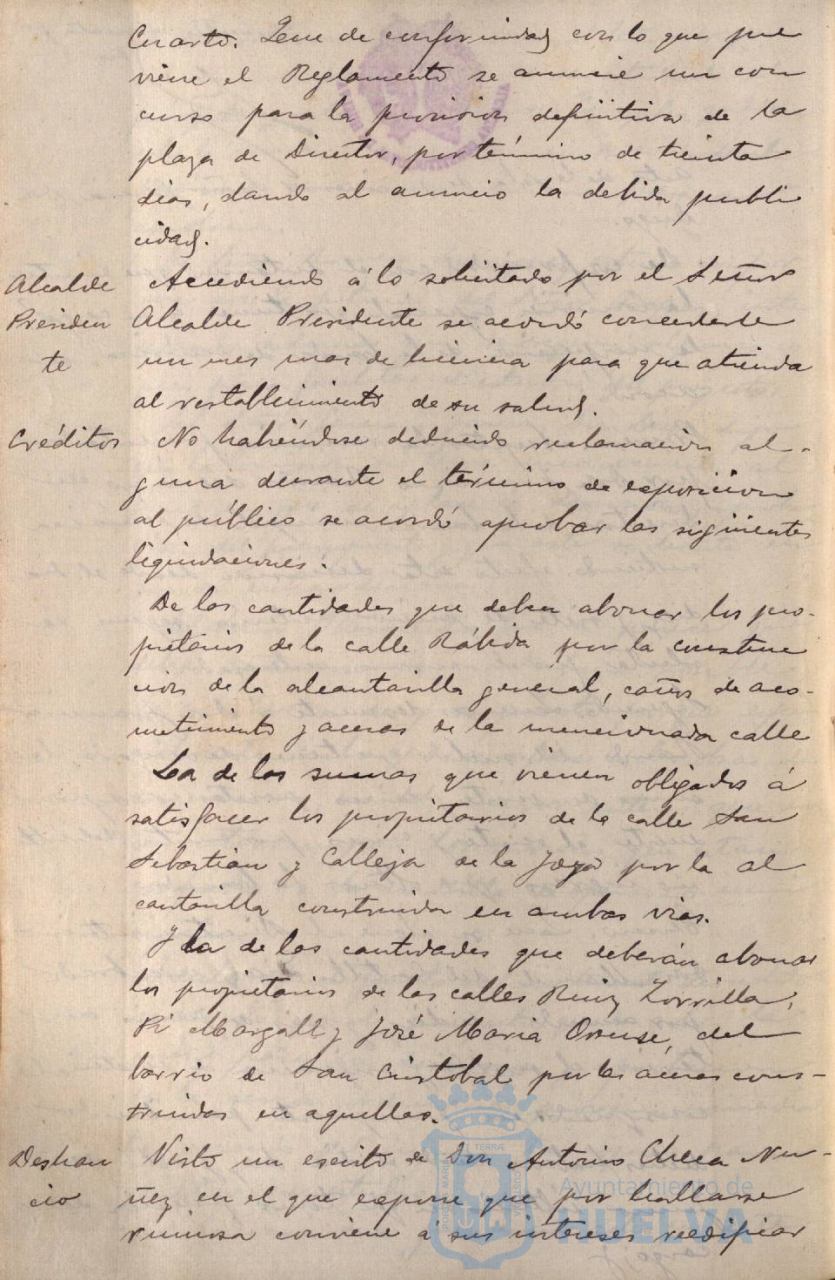 Cuarto. Que de conformidad con lo que pre
viene el Reglamento se anuncie un con
curso para la provision definitiva de la
plaza de Director, por término de treinta
dias, dando al anuncio la debida publi
cidad.
Alcalde Presiden te
Accediendo á lo solicitado por el Señor
Alcalde Presidente se acordó concederle
un mes mas de licencia para que atienda
al restablecimiento de su salud.
Créditos
No habiéndose deducido reclamacion al-
guna durante el término de exposicion
al público se acordó aprobar las siguientes
liquidaciones:
De las cantidades que deben abonar los pro-
pietarios de la calle Rábida por la construc
cion de la alcantarilla general, caños de aco-
metimiento y aceras de la mencionada calle
La de las sumas que vienen obligados á
satisfacer los propietarios de la calle San
Sebastian y Calleja de la Joya por la al
cantarilla construida en ambas vias.
Y la de las cantidades que deberán abonar
los propietarios de las calles Ruiz Zorrilla,
Pi Margall y José Maria Orense, del
barrio de San Cristobal por las aceras cons-
truidas en aquellas.
Deshau cio
Visto un escrito de Don Antonio Checa Nu-
ñez en el que expone que por hallarse
ruinosa conviene á sus intereses reedificar
Ayuntamiento de
HUELVA